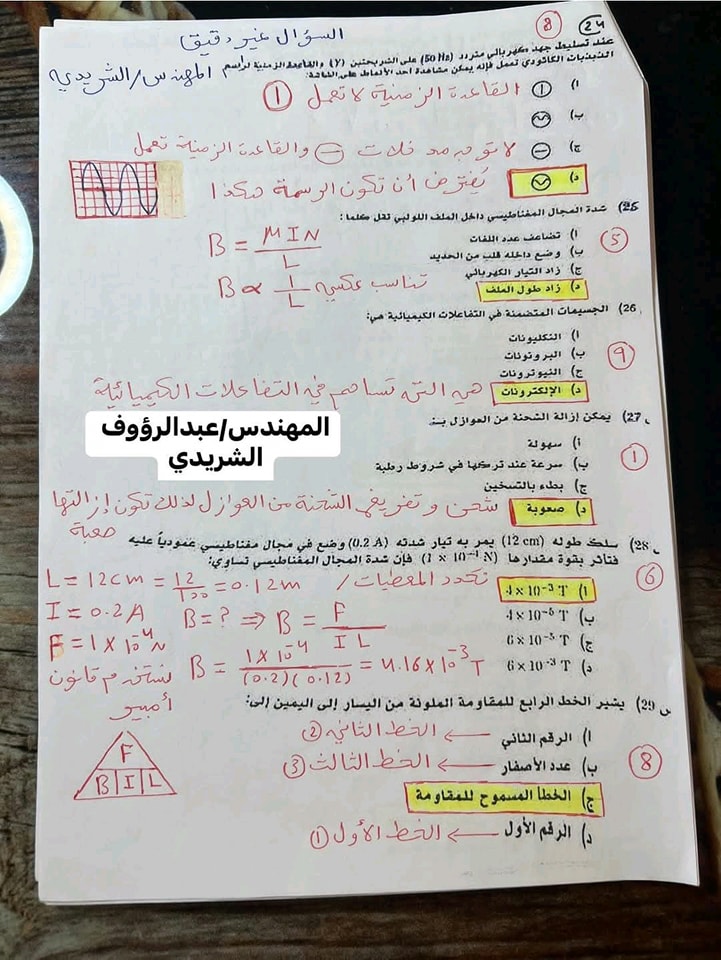 السؤال غير دقيق
8
24
عند تسليط جهد كهربائي متردد (50 Hz) على الشريحتين (Y) والقاعدة الزمنية لراسم
الذبذبات الكاثودي تعمل فإنه يمكن مشاهدة احد الأنماط على الشاشة:
المهندس/الشريدي
أ)
القاعدة الزمنية لا تعمل 1
ب)
ج)
لا توجد فلات والقاعدة الزمنية تعمل
د)
يُفترض أن تكون الرسمة هكذا
25) شدة المجال المغناطيسي داخل الملف اللولبي تقل كلما:
5
أ) تضاعف عدد اللفات
ب) وضع داخله قلب من الحديد
ج) زاد التيار الكهربائي
د) زاد طول الملف
B = MIN / L
B ∝ 1/L تناسب عكسي
26) الجسيمات المتضمنة في التفاعلات الكيميائية هي:
9
أ) النكليونات
ب) البروتونات
ج) النيوترونات
د) الإلكترونات
هي التي تساهم في التفاعلات الكيميائية
المهندس/عبدالرؤوف
الشريدي
27) يمكن إزالة الشحنة من العوازل بـ:
1
أ) سهولة
ب) سرعة عند تركها في شروط رطبة
ج) بطء بالتسخين
د) صعوبة
شحن وتفريغ الشحنة من العوازل لذلك تكون إزالتها
صعبة
28) سلك طوله (12 cm) يمر به تيار شدته (0.2 A) وضع في مجال مغناطيسي عمودياً عليه
فتأثر بقوة مقدارها (1 × 10⁻⁴ N) فإن شدة المجال المغناطيسي تساوي:
6
أ) 4 × 10⁻³ T
ب) 4 × 10⁻⁵ T
ج) 6 × 10⁻⁵ T
د) 6 × 10⁻³ T
نحدد المعطيات /
L = 12cm = 12/100 = 0.12m
I = 0.2 A
B = ? ⇒ B = F / I L
F = 1 × 10⁻⁴ N
B = 1 × 10⁻⁴ / (0.2)(0.12) = 4.16 × 10⁻³ T
نستخدم قانون
أمبير
F
B I L
29) يشير الخط الرابع للمقاومة الملونة من اليسار إلى اليمين إلى:
8
أ) الرقم الثاني ← الخط الثاني 2
ب) عدد الأصفار ← الخط الثالث 3
ج) الخطأ المسموح للمقاومة
د) الرقم الأول ← الخط الأول 1